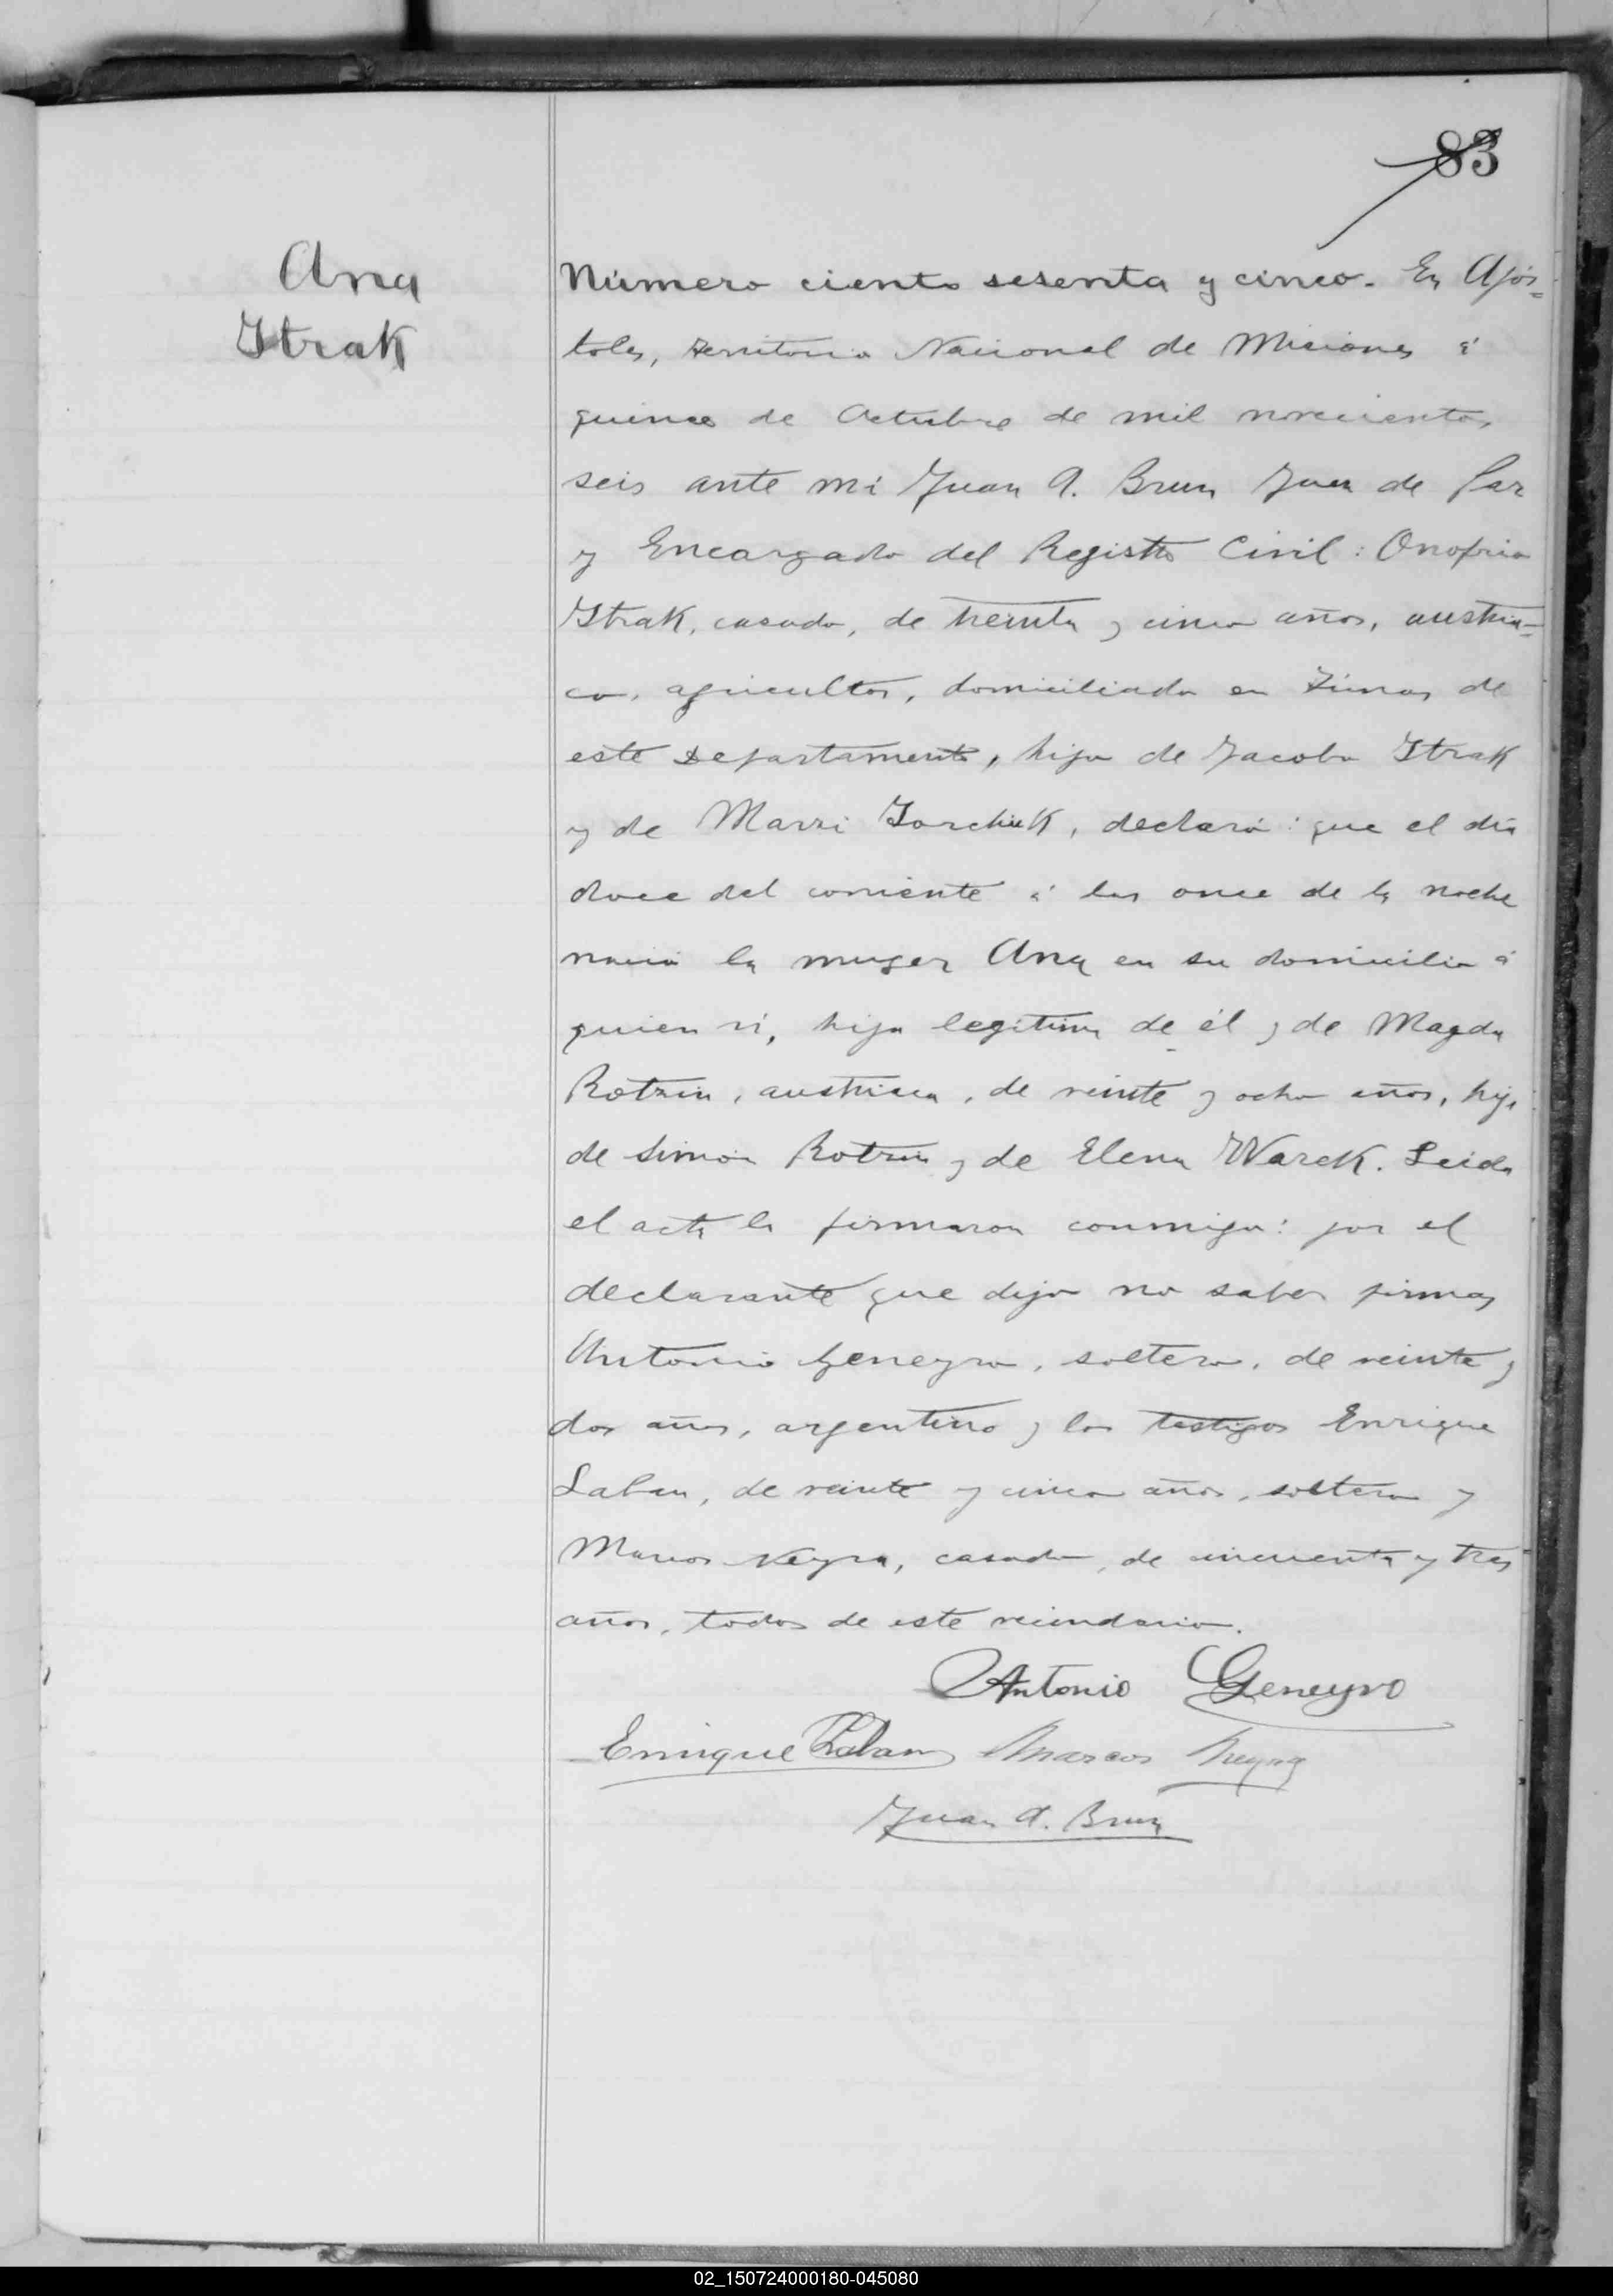 83
Ana
Itrak
Número ciento sesenta y cinco. En Após=
toles, territorio Nacional de Misiones á
quince de Octubre de mil novecientos
seis ante mi Juan A. Brun Juez de Paz
y Encargado del Registro Civil: Onofrio
Itrak, casado, de treinta y cinco años, austria=
co, agricultor, domiciliado en de
este Departamento, hijo de Jacobo Itrak
y de Marri Jorchuk, declaró: que el dia
doce del corriente á las once de la noche
nació la muger Ana en su domicilio á
quien ví, hija legitima de él y de Magda
Rotzin, austriaca, de veinte y ocho años, hija
de Simón Rotzin y de Elena Warek. Leida
el acta la firmaron conmigo: por el
declarante que dijo no saber firmar
Antonio Geneyro, soltero, de veinte y
dos años, argentino y los testigos Enrique
Laban, de veinte y cinco años, soltero y
Marcos Neyra, casado, de cincuenta y tres
años, todos de este vecindario.
Antonio Geneyro
Enrique Laban Marcos Neyra
Juan A. Brun
02_150724000180-045080